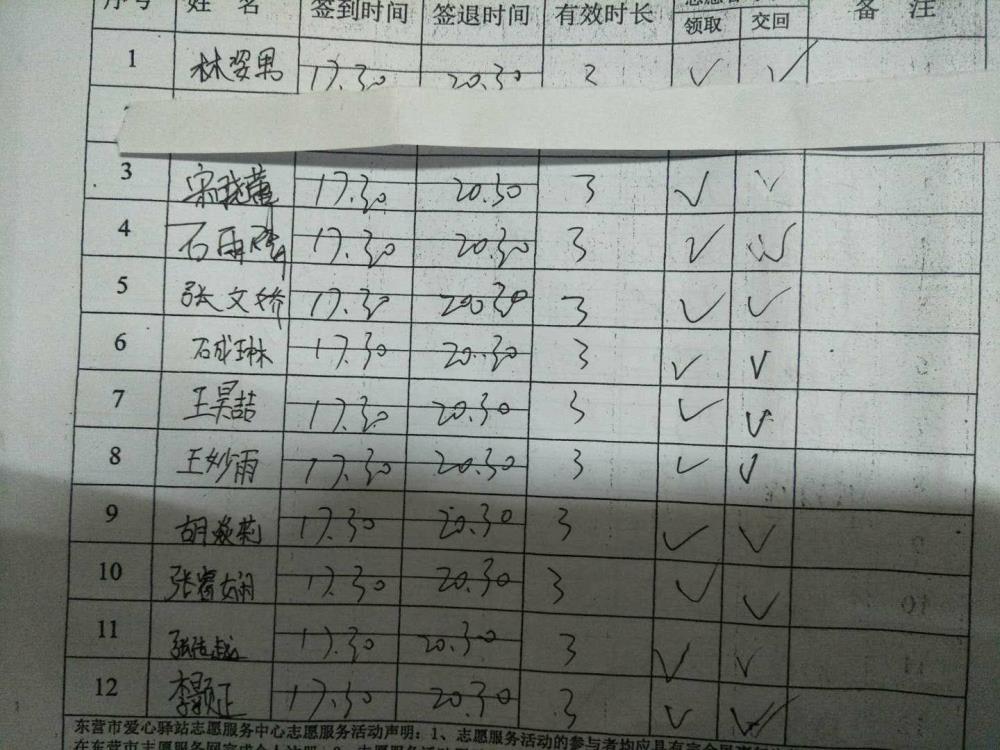 序号 姓 名 签到时间 签退时间 有效时长 领取 交回 备 注
1 林姿男 17.30 20.30 3 √ √
3 17.30 20.30 3 √ √
4 石雨 17.30 20.30 3 √ √
5 张文娇 17.30 20.30 3 √ √
6 石成琳 17.30 20.30 3 √ √
7 王昊喆 17.30 20.30 3 √ √
8 王妙雨 17.30 20.30 3 √ √
9 胡焱莉 17.30 20.30 3 √ √
10 张睿娴 17.30 20.30 3 √ √
11 张 17.30 20.30 3 √ √
12 李颢正 17.30 20.30 3 √ √
东营市爱心驿站志愿服务中心志愿服务活动声明：1、志愿服务活动的参与者均应具有完全民事